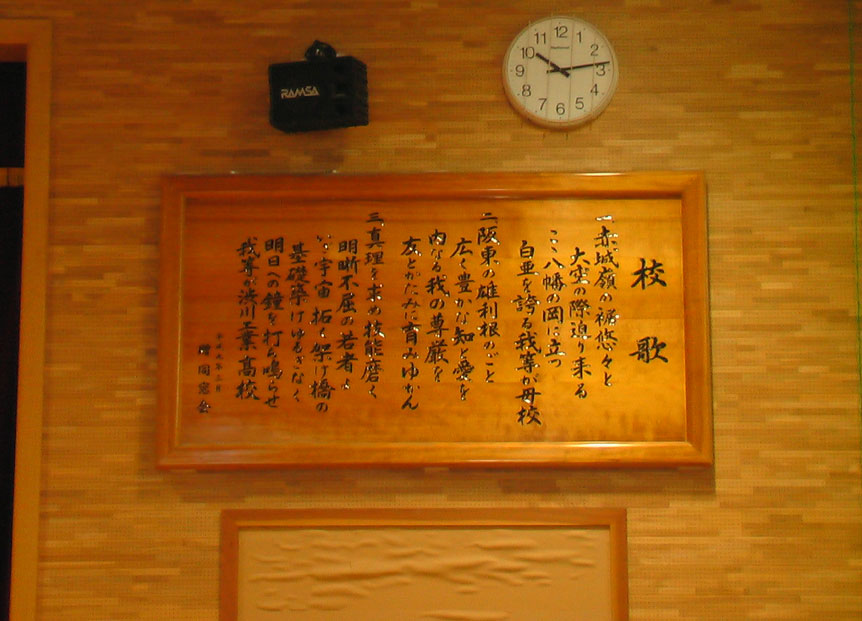 RAMSA
12
1
2
3
4
5
6
7
8
9
10
11
校歌
一、赤城嶺の裾悠々と
大空の際迫り来る
ここ八幡の岡に立つ
白亜を誇る我等が母校
二、阪東の雄利根のごと
広く豊かな知と愛を
内なる我の尊厳を
友とがたみに育みゆかん
三、真理を求め技能磨く
明晰不屈の若者よ
いざ宇宙拓く架け橋の
基礎築けゆるぎなく
明日への鐘を打ち鳴らせ
我等が渋川工業高校
平成九年三月
同窓会